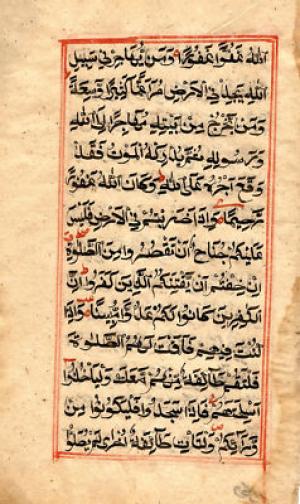 اللهُ عَفُوًّا غَفُورًا وَمَنْ يُهَاجِرْ فِي سَبِيلِ
اللهِ يَجِدْ فِي الْأَرْضِ مُرَاغَمًا كَثِيرًا وَسَعَةً
وَمَنْ يَخْرُجْ مِنْ بَيْتِهِ مُهَاجِرًا إِلَى اللهِ
وَرَسُولِهِ ثُمَّ يُدْرِكْهُ الْمَوْتُ فَقَدْ
وَقَعَ أَجْرُهُ عَلَى اللهِ وَكَانَ اللهُ غَفُورًا
رَحِيمًا وَإِذَا ضَرَبْتُمْ فِي الْأَرْضِ فَلَيْسَ
عَلَيْكُمْ جُنَاحٌ أَنْ تَقْصُرُوا مِنَ الصَّلٰوةِ
إِنْ خِفْتُمْ أَنْ يَفْتِنَكُمُ الَّذِينَ كَفَرُوا إِنَّ
الْكٰفِرِينَ كَانُوا لَكُمْ عَدُوًّا مُبِينًا وَإِذَا
كُنْتَ فِيهِمْ فَأَقَمْتَ لَهُمُ الصَّلٰوةَ
فَلْتَقُمْ طَائِفَةٌ مِنْهُمْ مَعَكَ وَلْيَأْخُذُوا
أَسْلِحَتَهُمْ فَإِذَا سَجَدُوا فَلْيَكُونُوا مِنْ
وَرَائِكُمْ وَلْتَأْتِ طَائِفَةٌ أُخْرٰى لَمْ يُصَلُّوا